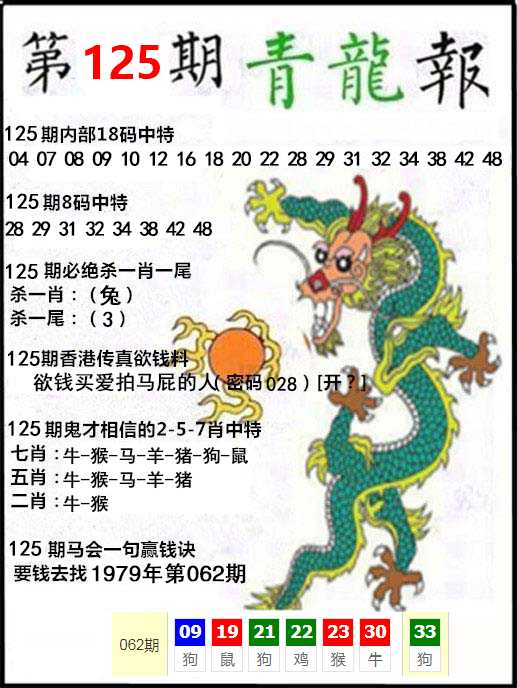 第125期青龍報
125期内部18码中特
04 07 08 09 10 12 16 18 20 22 28 29 31 32 34 38 42 48
125期8码中特
28 29 31 32 34 38 42 48
125期必绝杀一肖一尾
杀一肖：（兔）
杀一尾：（3）
125期香港传真欲钱料
欲钱买爱拍马屁的人(密码028)[开？]
125期鬼才相信的2-5-7肖中特
七肖：牛-猴-马-羊-猪-狗-鼠
五肖：牛-猴-马-羊-猪
二肖：牛-猴
125期马会一句赢钱诀
要钱去找1979年第062期
062期 09 19 21 22 23 30 33
狗 鼠 狗 鸡 猴 牛 狗